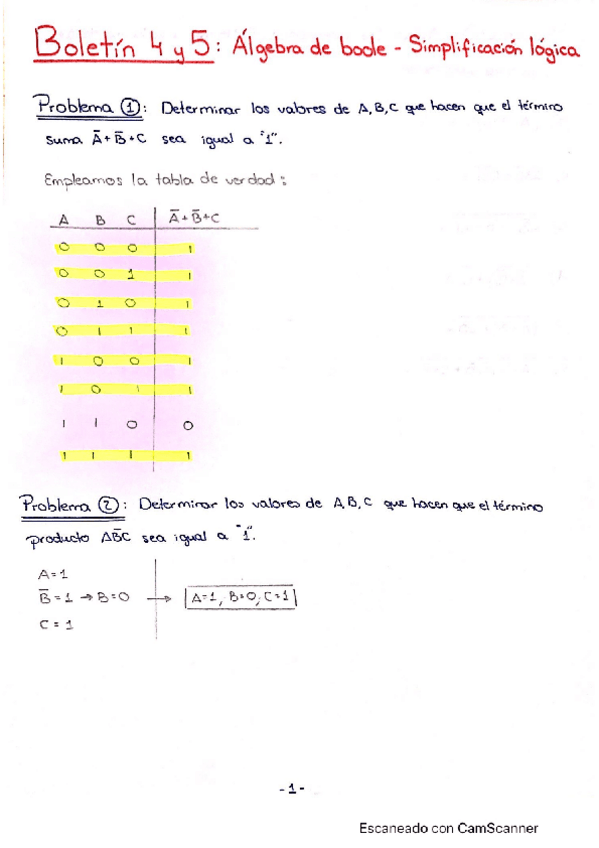 Boletín 4 y 5: Álgebra de boole - Simplificación lógica
Problema ①: Determinar los valores de A, B, C que hacen que el término
suma A̅+B̅+C sea igual a "1".
Empleamos la tabla de verdad:
A B C A̅+B̅+C
0 0 0 1
0 0 1 1
0 1 0 1
0 1 1 1
1 0 0 1
1 0 1 1
1 1 0 0
1 1 1 1
Problema ②: Determinar los valores de A, B, C que hacen que el término
producto AB̅C sea igual a "1".
A=1
B̅=1 → B=0 → A=1, B=0, C=1
C=1
-1-
Escaneado con CamScanner